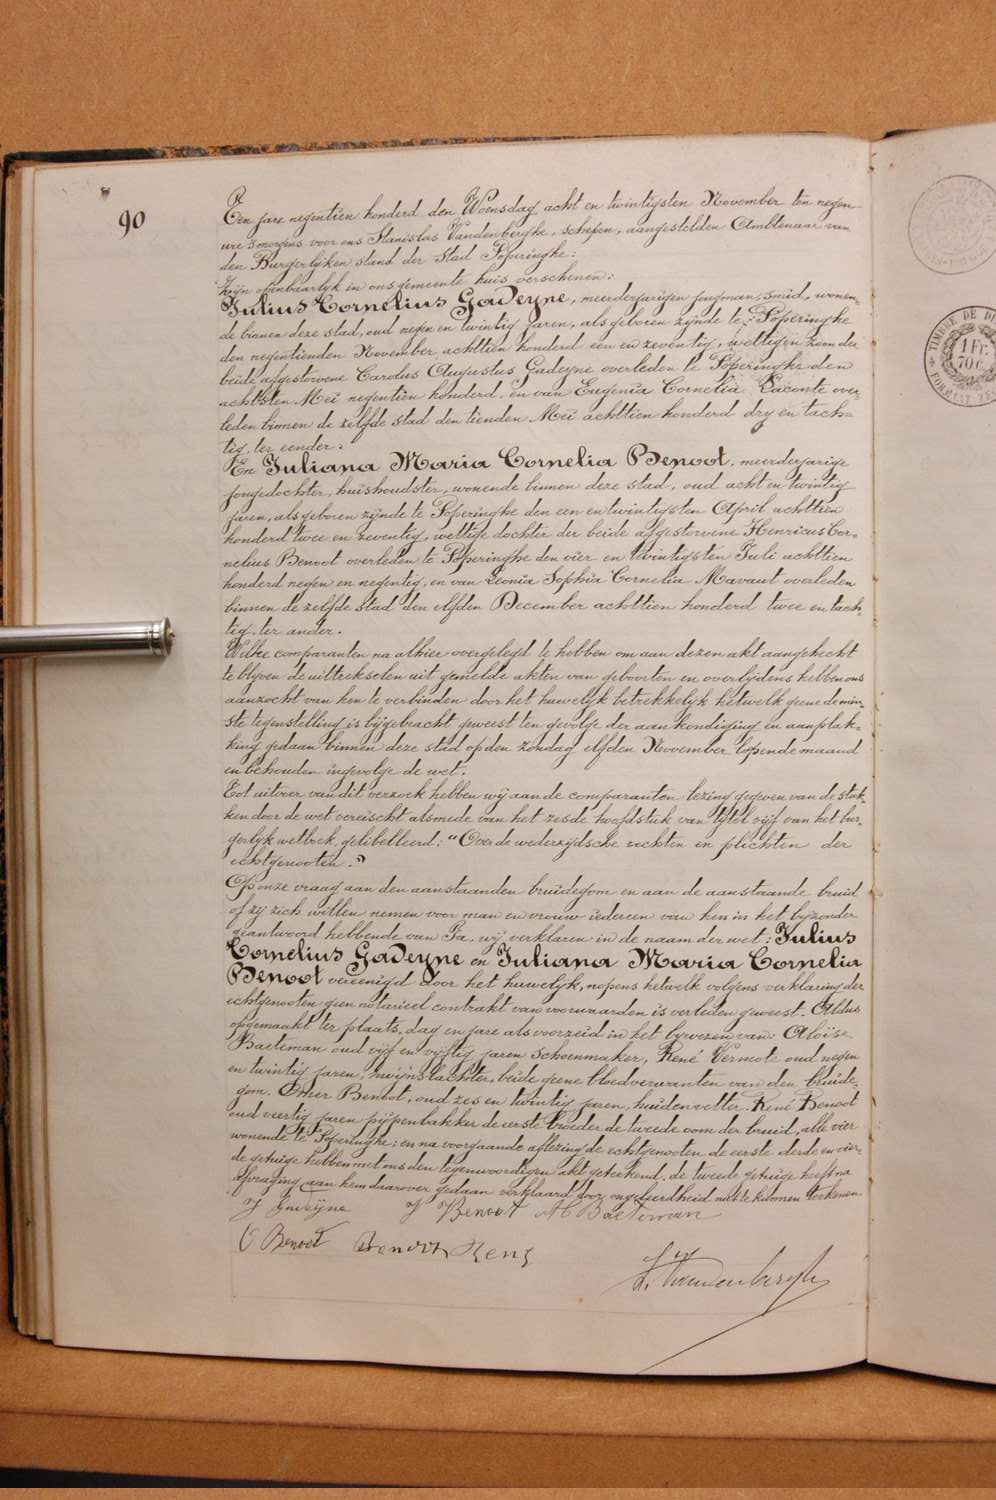 90
Ten jare negentien honderd den Woensdag acht en twintigsten November ten negen
ure smorgens voor ons Stanislas Vandenberghe, schepen, aangestelden Ambtenaar van
den Burgerlijken stand der Stad Poperinghe:
Zijn openbaarlyk in ons gemeente huis verschenen:
Julius Cornelius Gadeyne, meerderjarigen jongman, smid, wonen-
de binnen deze stad, oud negen en twintig jaren, als geboren zijnde te Poperinghe
den negentienden November achttien honderd een en zeventig, wettigen zoon der
beide afgestorvene Carolus Augustus Gadeyne overleden te Poperinghe den
achtsten Meï negentien honderd, en van Eugenia Cornelia Laconte over-
leden binnen de zelfde stad den tienden Meï achttien honderd dry en tach-
tig, ter eender.
En Juliana Maria Cornelia Benoot, meerderjarige
jongedochter, huishoudster, wonende binnen deze stad, oud acht en twintig
jaren, als geboren zijnde te Poperinghe den een en twintigsten April achttien
honderd twee en zeventig, wettige dochter der beide afgestorvene Henricus Cor-
nelius Benoot overleden te Poperinghe den vier en twintigsten Juli achttien
honderd negen en negentig, en van Leonia Sophia Cornelia Mavaut overleden
binnen de zelfde stad den elfden December achttien honderd twee en tach-
tig, ter ander.
Welke comparanten na alhier overgelegd te hebben om aan dezen akt aangehecht
te blyven de uittrekselen uit gemelde akten van geboorten en overlijdens hebben ons
aanzocht van hen te verbinden door het huwelyk betrekkelyk hetwelk geene de min-
ste tegenstelling is bijgebracht geweest ten gevolge der aankondiging en aanplak-
king gedaan binnen deze stad op den zondag elfden November lopende maand
en behouden ingevolge de wet.
Tot uitvoer van dit verzoek hebben wij aan de comparanten lezing gegeven van de stuk-
ken door de wet vereischt alsmede van het zesde hoofdstuk van tytel vijf van het bur-
gerlyk wetboek, gelibelleerd: "Over de wederzijdsche rechten en plichten der
echtgenooten."
Op onze vraag aan den aanstaanden bruidegom en aan de aanstaande bruid
of zy zich willen nemen voor man en vrouw iedereen van hen in het byzonder
geantwoord hebbende van Ja, wij verklaren in de naam der wet: Julius
Cornelius Gadeyne en Juliana Maria Cornelia
Benoot vereenigd door het huwelyk, nopens hetwelk volgens verklaring der
echtgenooten geen notarieel contrakt van voorwaarden is verleden geweest. Aldus
opgemaakt ter plaats, dag en jare als voorzeid in het bywezen van: Aloïse
Baeteman oud vijf en vijftig jaren schoenmaker, René Vermote oud negen
en twintig jaren, zwijnslachter, beide geene bloedverwanten van den bruide-
gom. Omer Benoot, oud zes en twintig jaren, huidenvetter, René Benoot
oud veertig jaren pijpenbakker de eerste broeder de tweede oom der bruid, alle vier
wonende te Poperinghe; en na voorgaande aflezing de echtgenooten de eerste derde en vier-
de getuige hebben met ons den tegenwoordigen akt geteekend, de tweede getuige heeft na
afvraging aan hem daarover gedaan verklaard door ongeleerdheid niet te kunnen teekenen.
J Gadeyne J Benoot A Baeteman
O Benoot Benoot René
St. Vandenberghe
TIMBRE DE DI
1 Fr.
70 C.